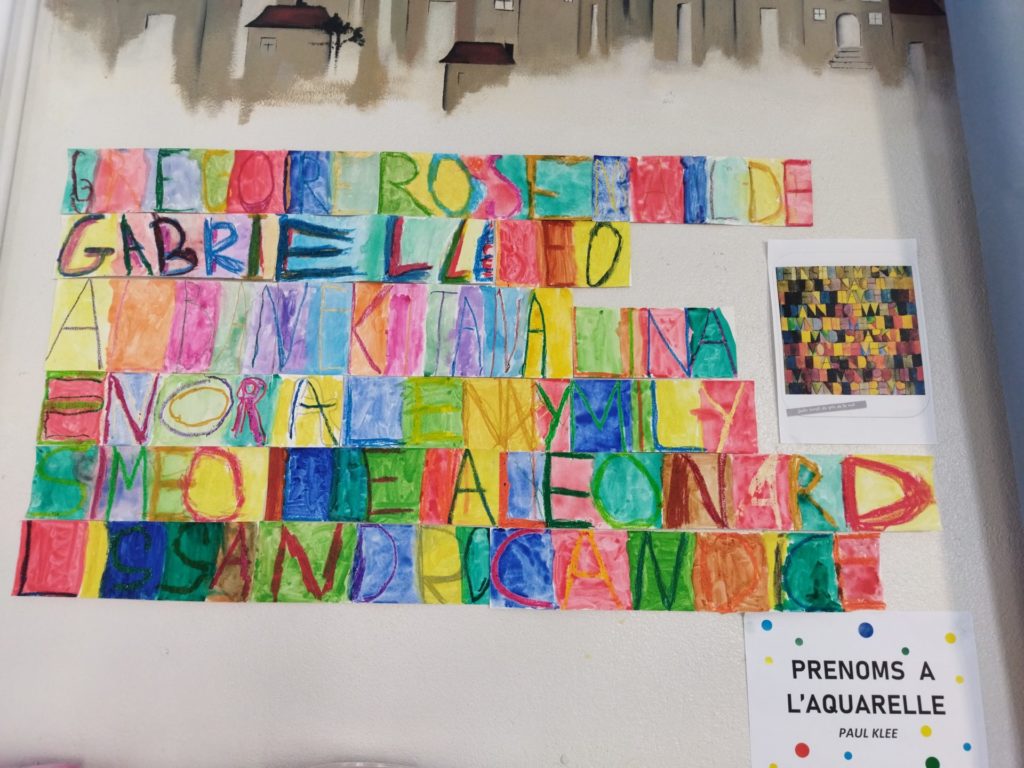 GREGOIRE ROSE MATILDE
GABRIELLE
KITANA LINA
ENORA LENNY MILY
SIMEO LEONARD
LISSANDRO CANDICE
PRENOMS A
L'AQUARELLE
PAUL KLEE